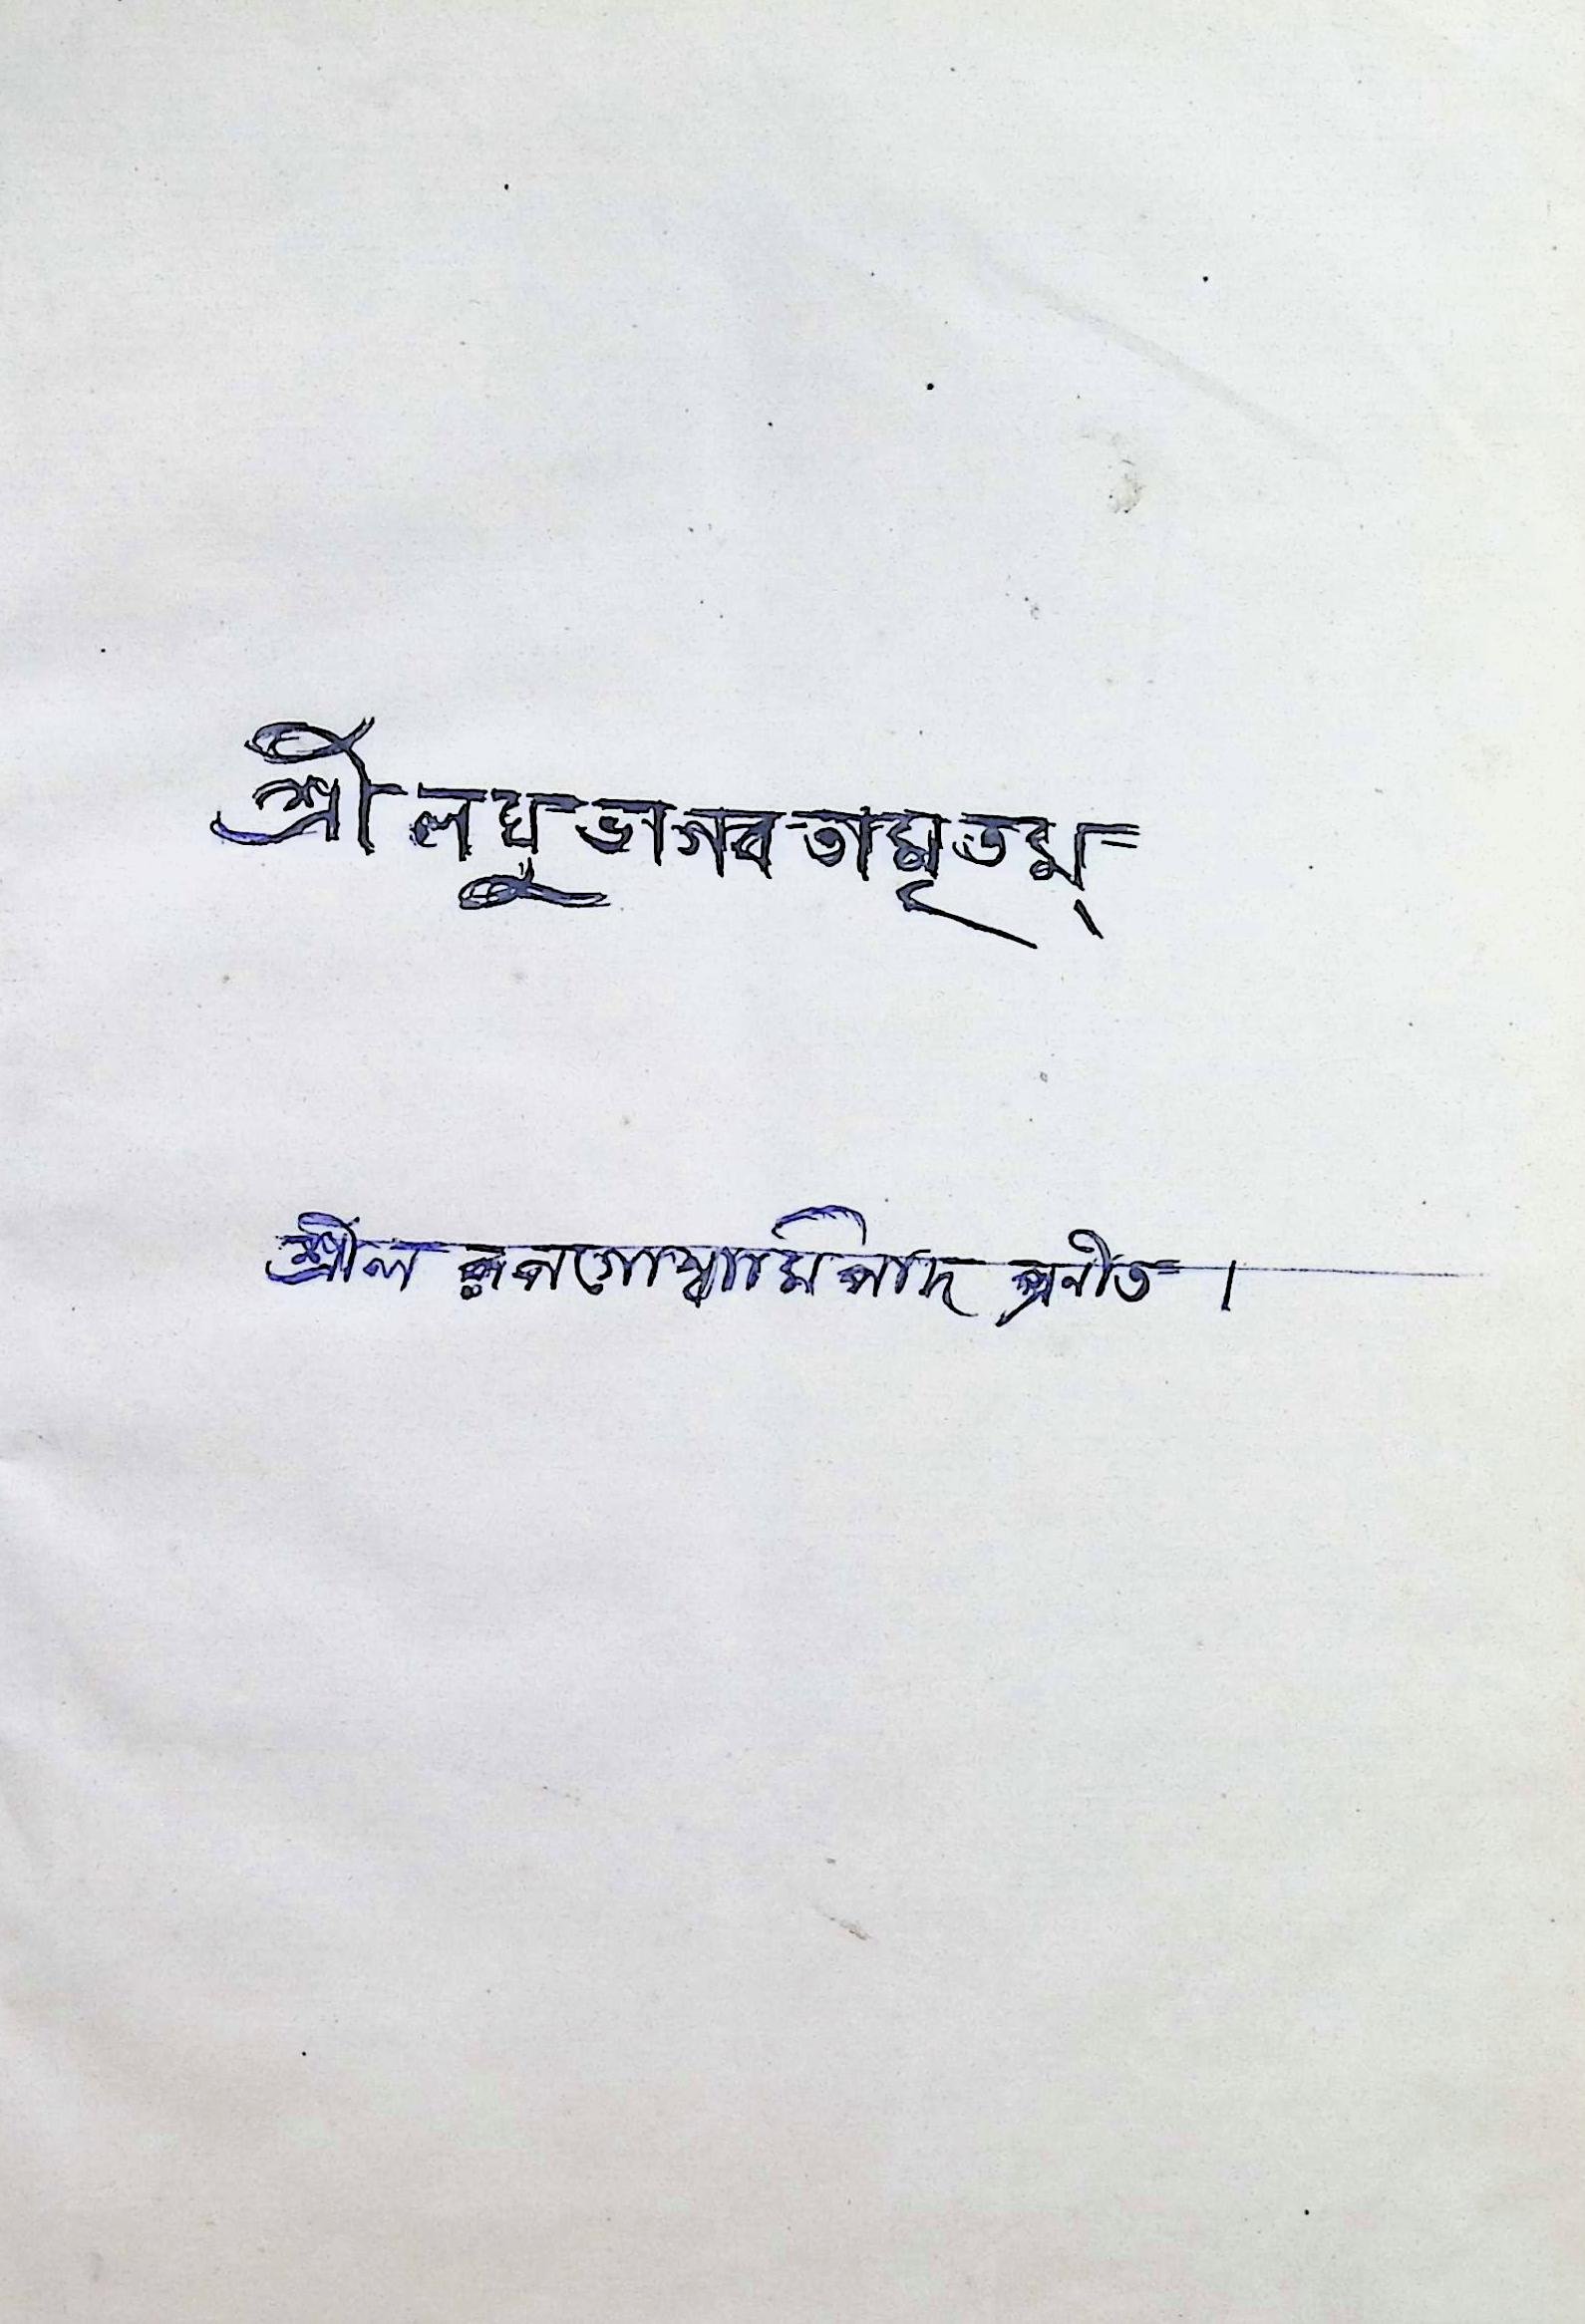 শ্রীলঘুভাগবতামৃতম্
শ্রীল রূপগোস্বামিপাদ প্রনীত ।